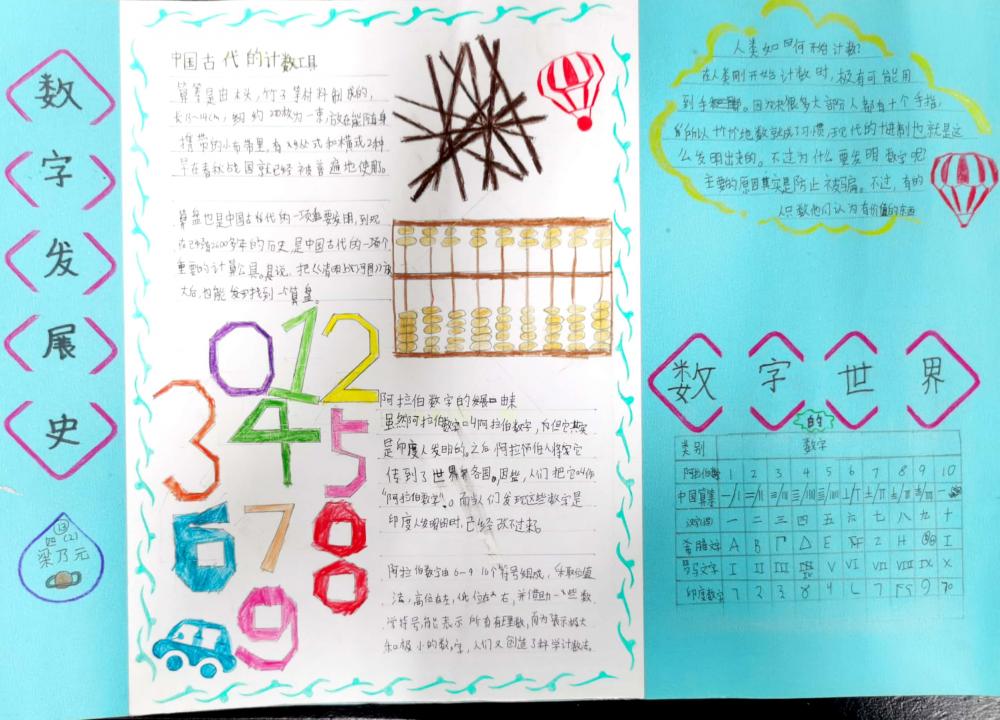 数字发展史
(13)
四(2)
梁乃元
中国古代的计数工具
算筹是由木头,竹子等材料制成的,
长13~14cm,约二百枚为一束,放在能随身
携带的小布带里,有纵式和横式2种
早在春秋战国就已经被普遍地使用。
算盘也是中国古代的一项重要发明,到现
在已有2600多年的历史,是中国古代的一项个
重要的计算公具。具说,把《清明上河图》放
大后,也能找到一个算盘。
0 1 2
3 4 5
6 7 8
9
阿拉伯数字的由来
虽然阿拉伯数字叫阿拉伯数字,但它其实
是印度人发明的。之后阿拉伯人将它
传到了世界各国。因些,人们把它叫作
"阿拉伯数字"。而当人们发现这些数字是
印度人发明的时,已经改不过来。
阿拉伯数字由0-9 10个符号组成,采取位值
法,高位在左,低位在右,并借助一些数
学符号,能表示所有有理数,而为表示极大
和极小的数字,人们又创造了科学计数法。
人类如何开始计数?
在人类刚开始计数时,极有可能用
到手。因为很多大部分人都有十个手指,
所以十个十个地数就成了习惯,现代的十进制也就是这
么发明出来的。不过为什么要发明数字呢?
主要的原因其实是防止被骗。不过,有的
人只数他们认为有价值的东西
数字世界
的
类别 数字
阿拉伯数 1 2 3 4 5 6 7 8 9 10
中国算筹
汉字 一 二 三 四 五 六 七 八 九 十
希腊文 Α Β Γ Δ Ε Ζ Η Ι
罗马文字 I II III IV V VI VII VIII IX X
印度数字